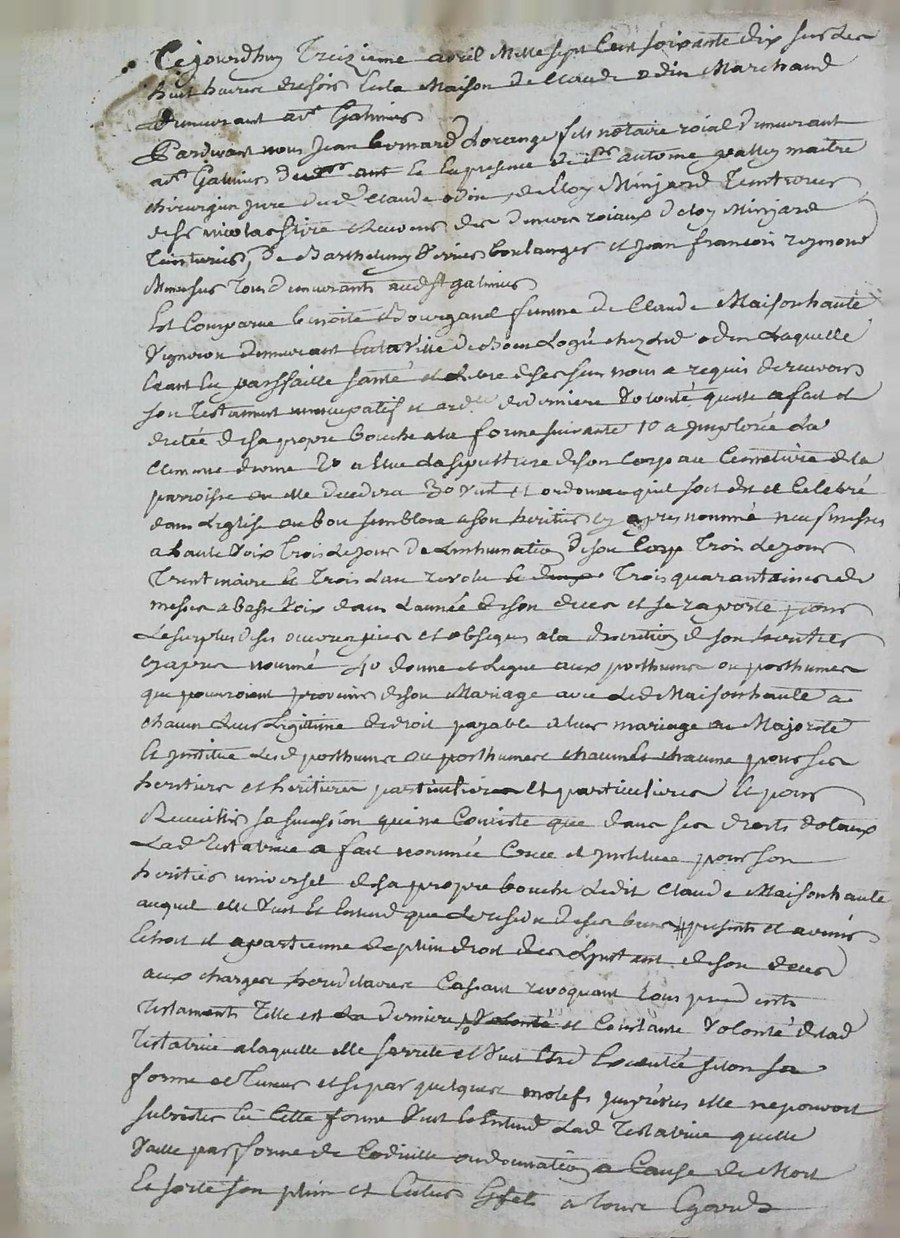 Cejourdhuy Treizieme avril Mille sept Cent soixante dix sur les
huit heures du soir En la Maison de Claude odin Marchand
Demeurant a St Galmier
Pardevant nous Jean bernard fils notaire roial demeurant
a St Galmier En presence de Sr antoine maitre
chirurgien jure dud Claude odin, de Eloy Minjard Teinturier
de Sr nicolas Receveur des deniers roiaux d eloy Minjard
Teinturier, de Barthelemy boulanger et Jean francois reymond
Menusier Tous demeurants aud St galmier
Est Comparue benoite Bourganel femme de Claude Maisonhaute
Vigneron demeurant En la Ville de Boen Logée chez led odin Laquelle
Etant En parfaitte santé et Libre de ses sens nous a requis de recevoir
son Testament nuncupatif et ord.re de derniere Volonté quelle a fait et
dictée de sa propre bouche a la forme suivante 1o a Implorée La
Clemence divine 2o a Elue La sepulture de son Corps au Cemetiere de la
parroisse ou elle decedera 3o Veut Et ordonne quil soit dit et Celebré
dans L'eglise ou bon semblera a son heritier cy apres nommé neuf messes
a haute Voix Trois Le jour de Linhumation de son Corps Trois Le jour
Trentenaire Et Trois L'an revolu Trois quarantaines de
messes a basse Voix dans L'année de son deces et se raporte pour
Le surplus de ses et obseques a la discretion de son heritier
cy apres nommé 4o donne et Legue aux posthume ou posthumes
qui pouroient provenir de son Mariage avec Led Maisonhaute a
chacun Leur Legittime de droit payable a leur mariage ou Majorité
Et Institue Led posthume ou posthumes chacun Et chacune pour ses
heritiers et heritieres particuliers Et particulieres Et pour
Recueillir sa succession qui ne Consiste que dans ses droits dotaux
Lad Testatrice a fait nommée Créée et Instituée pour son
heritier universel de sa propre bouche Ledit Claude Maisonhaute
auquel elle Veut Et Entend que Le reside de ses biens presents et avenir
Echoit et apartienne de plein droit des L'instant de son deces
aux charges hereditaires Cassant revoquant tous precedents
Testaments Telle est La derniere Volonté et Constante Volonté de lad
Testatrice a laquelle elle sarrete et Veut Etre Executée selon sa
forme et Teneur et si par quelques motifs imprévus elle ne pouvoit
subsister En Cette forme Veut et Entend Lad Testatrice quelle
Vaille par forme de Codicille ou donation a Cause de Mort
Et sorte son plein et Entier Effet a tous Egards